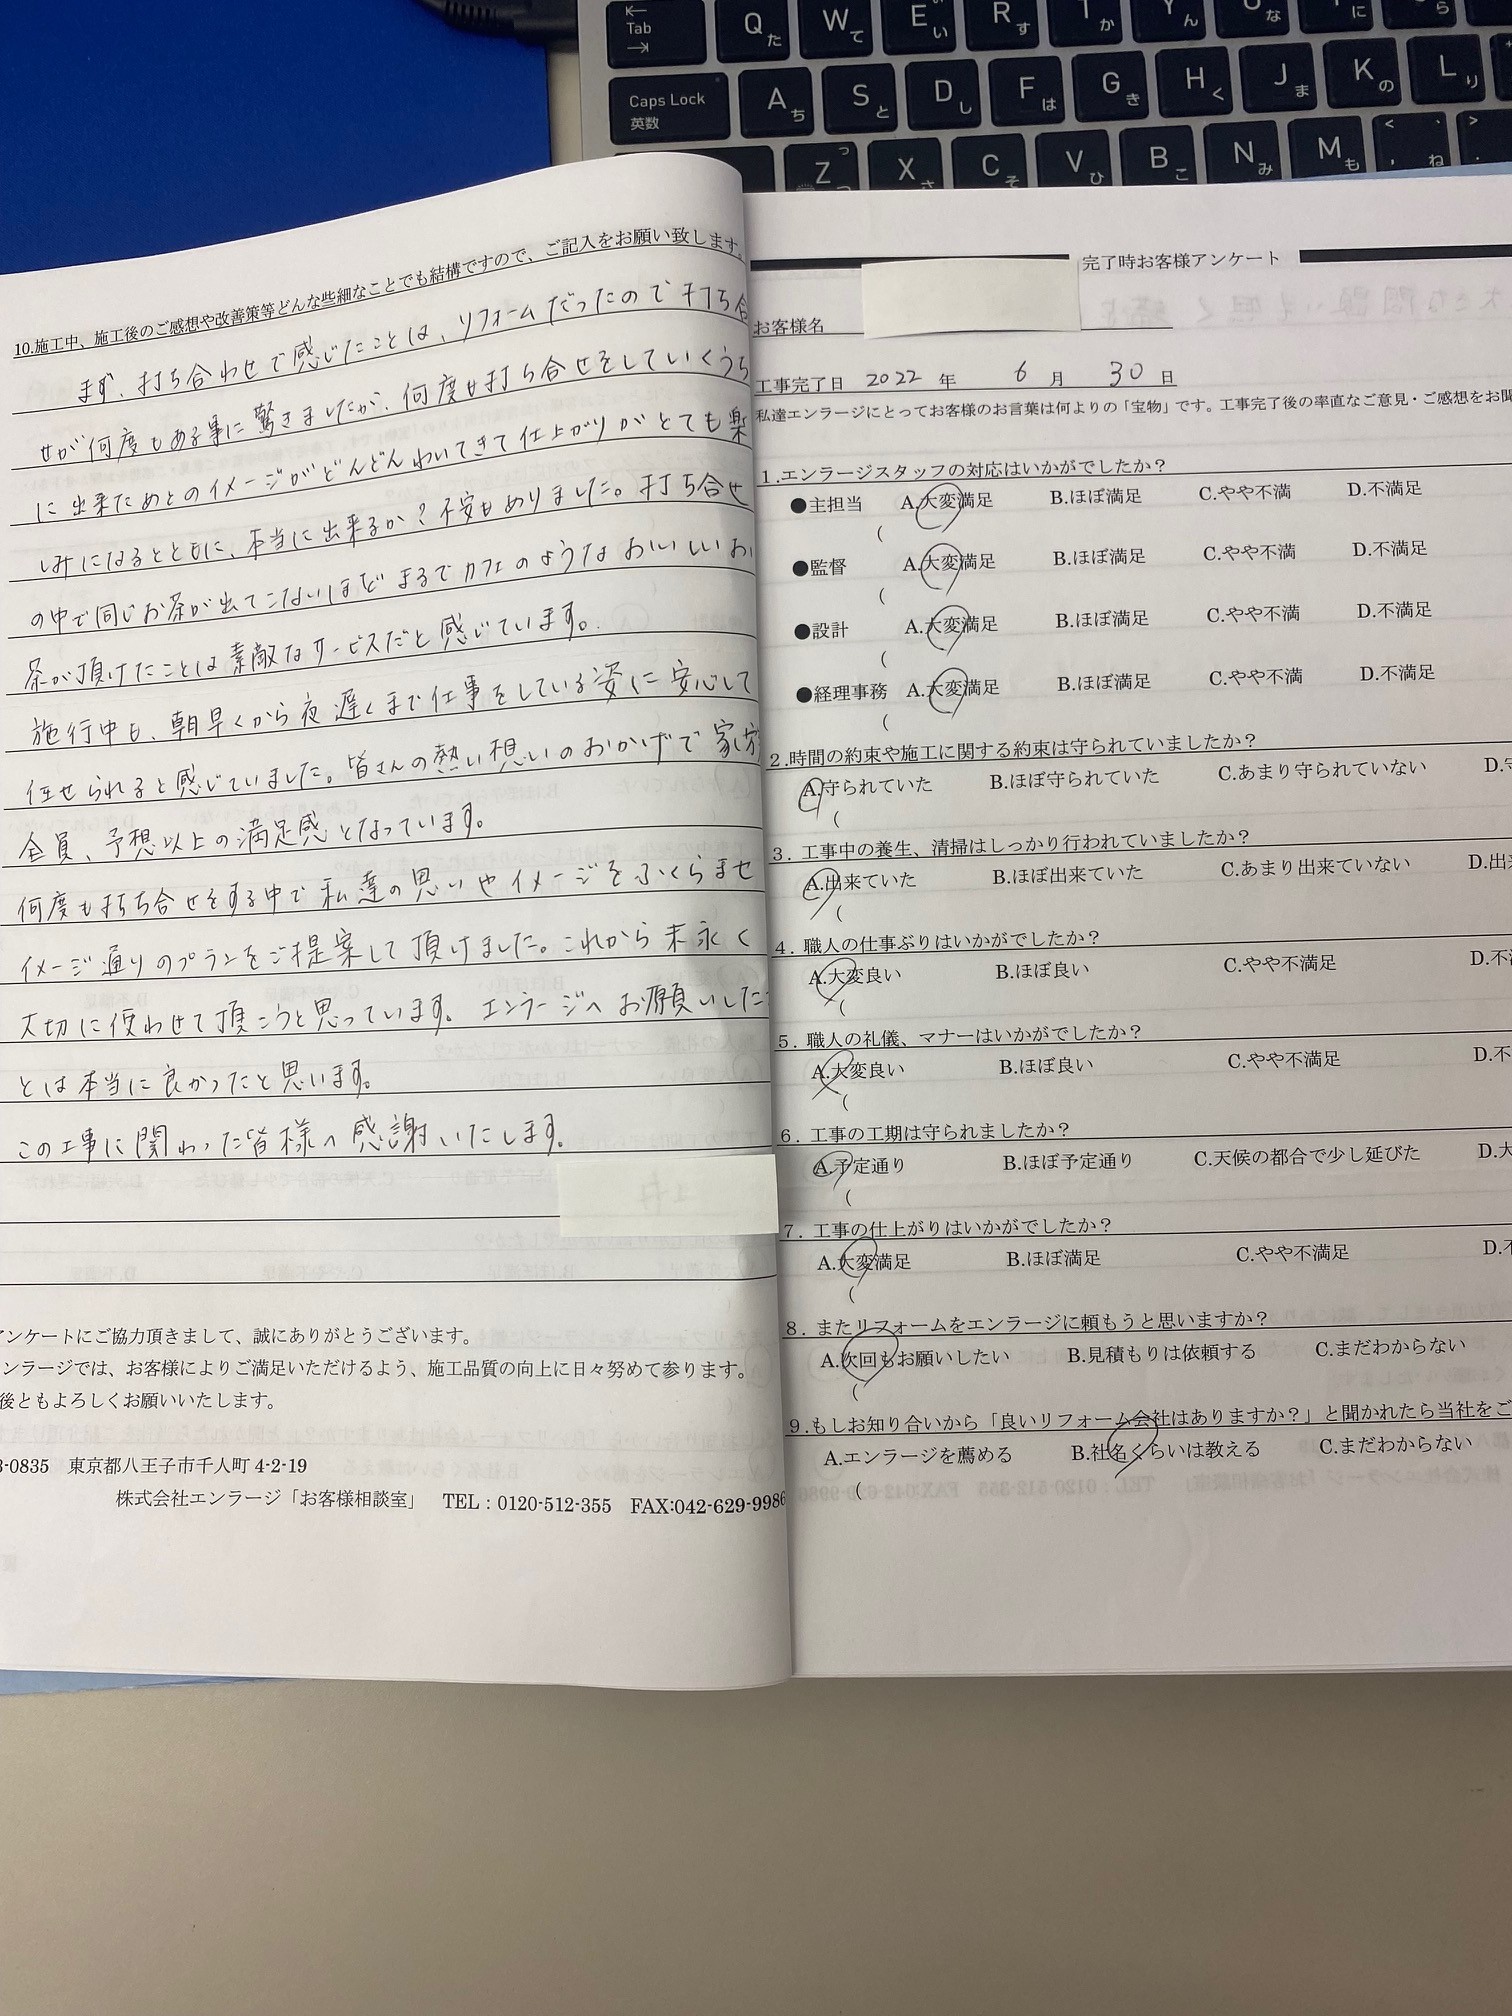 10.施工中、施工後のご感想や改善策等どんな些細なことでも結構ですので、ご記入をお願い致します。
まず、打ち合わせで感じたことは、リフォームだったので打ち合
せが何度もある事に驚きましたが、何度も打ち合せをしていくうち
に出来た あとのイメージがどんどんわいてきて仕上がりがとても楽
しみになるとともに、本当に出来るか?不安もありました。打ち合せ
の中で同じお茶が出てこないほどまるでカフェのようなおいしいお
茶が頂けたことは素敵なサービスだと感じています。
施行中も、朝早くから夜遅くまで仕事をしている姿に安心して
任せられると感じていました。皆さんの熱い想いのおかげで家族
全員、予想以上の満足感となっています。
何度も打ち合せをする中で私達の思いやイメージをふくらませ
イメージ通りのプランをご提案して頂けました。これから末永く
大切に使わせて頂こうと思っています。エンラージへお願いした
とは本当に良かったと思います。
この工事に関わった皆様へ感謝いたします。
アンケートにご協力頂きまして、誠にありがとうございます。
ンラージでは、お客様によりご満足いただけるよう、施工品質の向上に日々努めて参ります。
後ともよろしくお願いいたします。
3-0835 東京都八王子市千人町 4-2-19
株式会社エンラージ「お客様相談室」 TEL:0120-512-355 FAX:042-629-9986
完了時お客様アンケート
お客様名
工事完了日 2022 年 6 月 30 日
私達エンラージにとってお客様のお言葉は何よりの「宝物」です。工事完了後の率直なご意見・ご感想をお聞
1.エンラージスタッフの対応はいかがでしたか?
●主担当 A.大変満足 B.ほぼ満足 C.やや不満 D.不満足
(
●監督 A.大変満足 B.ほぼ満足 C.やや不満 D.不満足
(
●設計 A.大変満足 B.ほぼ満足 C.やや不満 D.不満足
(
●経理事務 A.大変満足 B.ほぼ満足 C.やや不満 D.不満足
(
2.時間の約束や施工に関する約束は守られていましたか?
A.守られていた B.ほぼ守られていた C.あまり守られていない D.守
(
3. 工事中の養生、清掃はしっかり行われていましたか?
A.出来ていた B.ほぼ出来ていた C.あまり出来ていない D.出
(
4. 職人の仕事ぶりはいかがでしたか?
A.大変良い B.ほぼ良い C.やや不満足 D.不
(
5. 職人の礼儀、マナーはいかがでしたか?
A.大変良い B.ほぼ良い C.やや不満足 D.不
(
6. 工事の工期は守られましたか?
A.予定通り B.ほぼ予定通り C.天候の都合で少し延びた D.大
(
7. 工事の仕上がりはいかがでしたか?
A.大変満足 B.ほぼ満足 C.やや不満足 D.不
(
8. またリフォームをエンラージに頼もうと思いますか?
A.次回もお願いしたい B.見積もりは依頼する C.まだわからない
(
9.もしお知り合いから「良いリフォーム会社はありますか?」と聞かれたら当社をご
A.エンラージを薦める B.社名くらいは教える C.まだわからない
(
Tab
Q た W て E い R す T か Y ん
Caps Lock 英数 A ち S と D し F は G き H く J ま K の L り
Z つ X さ C そ V ひ B こ N み M も < 、 , ね >